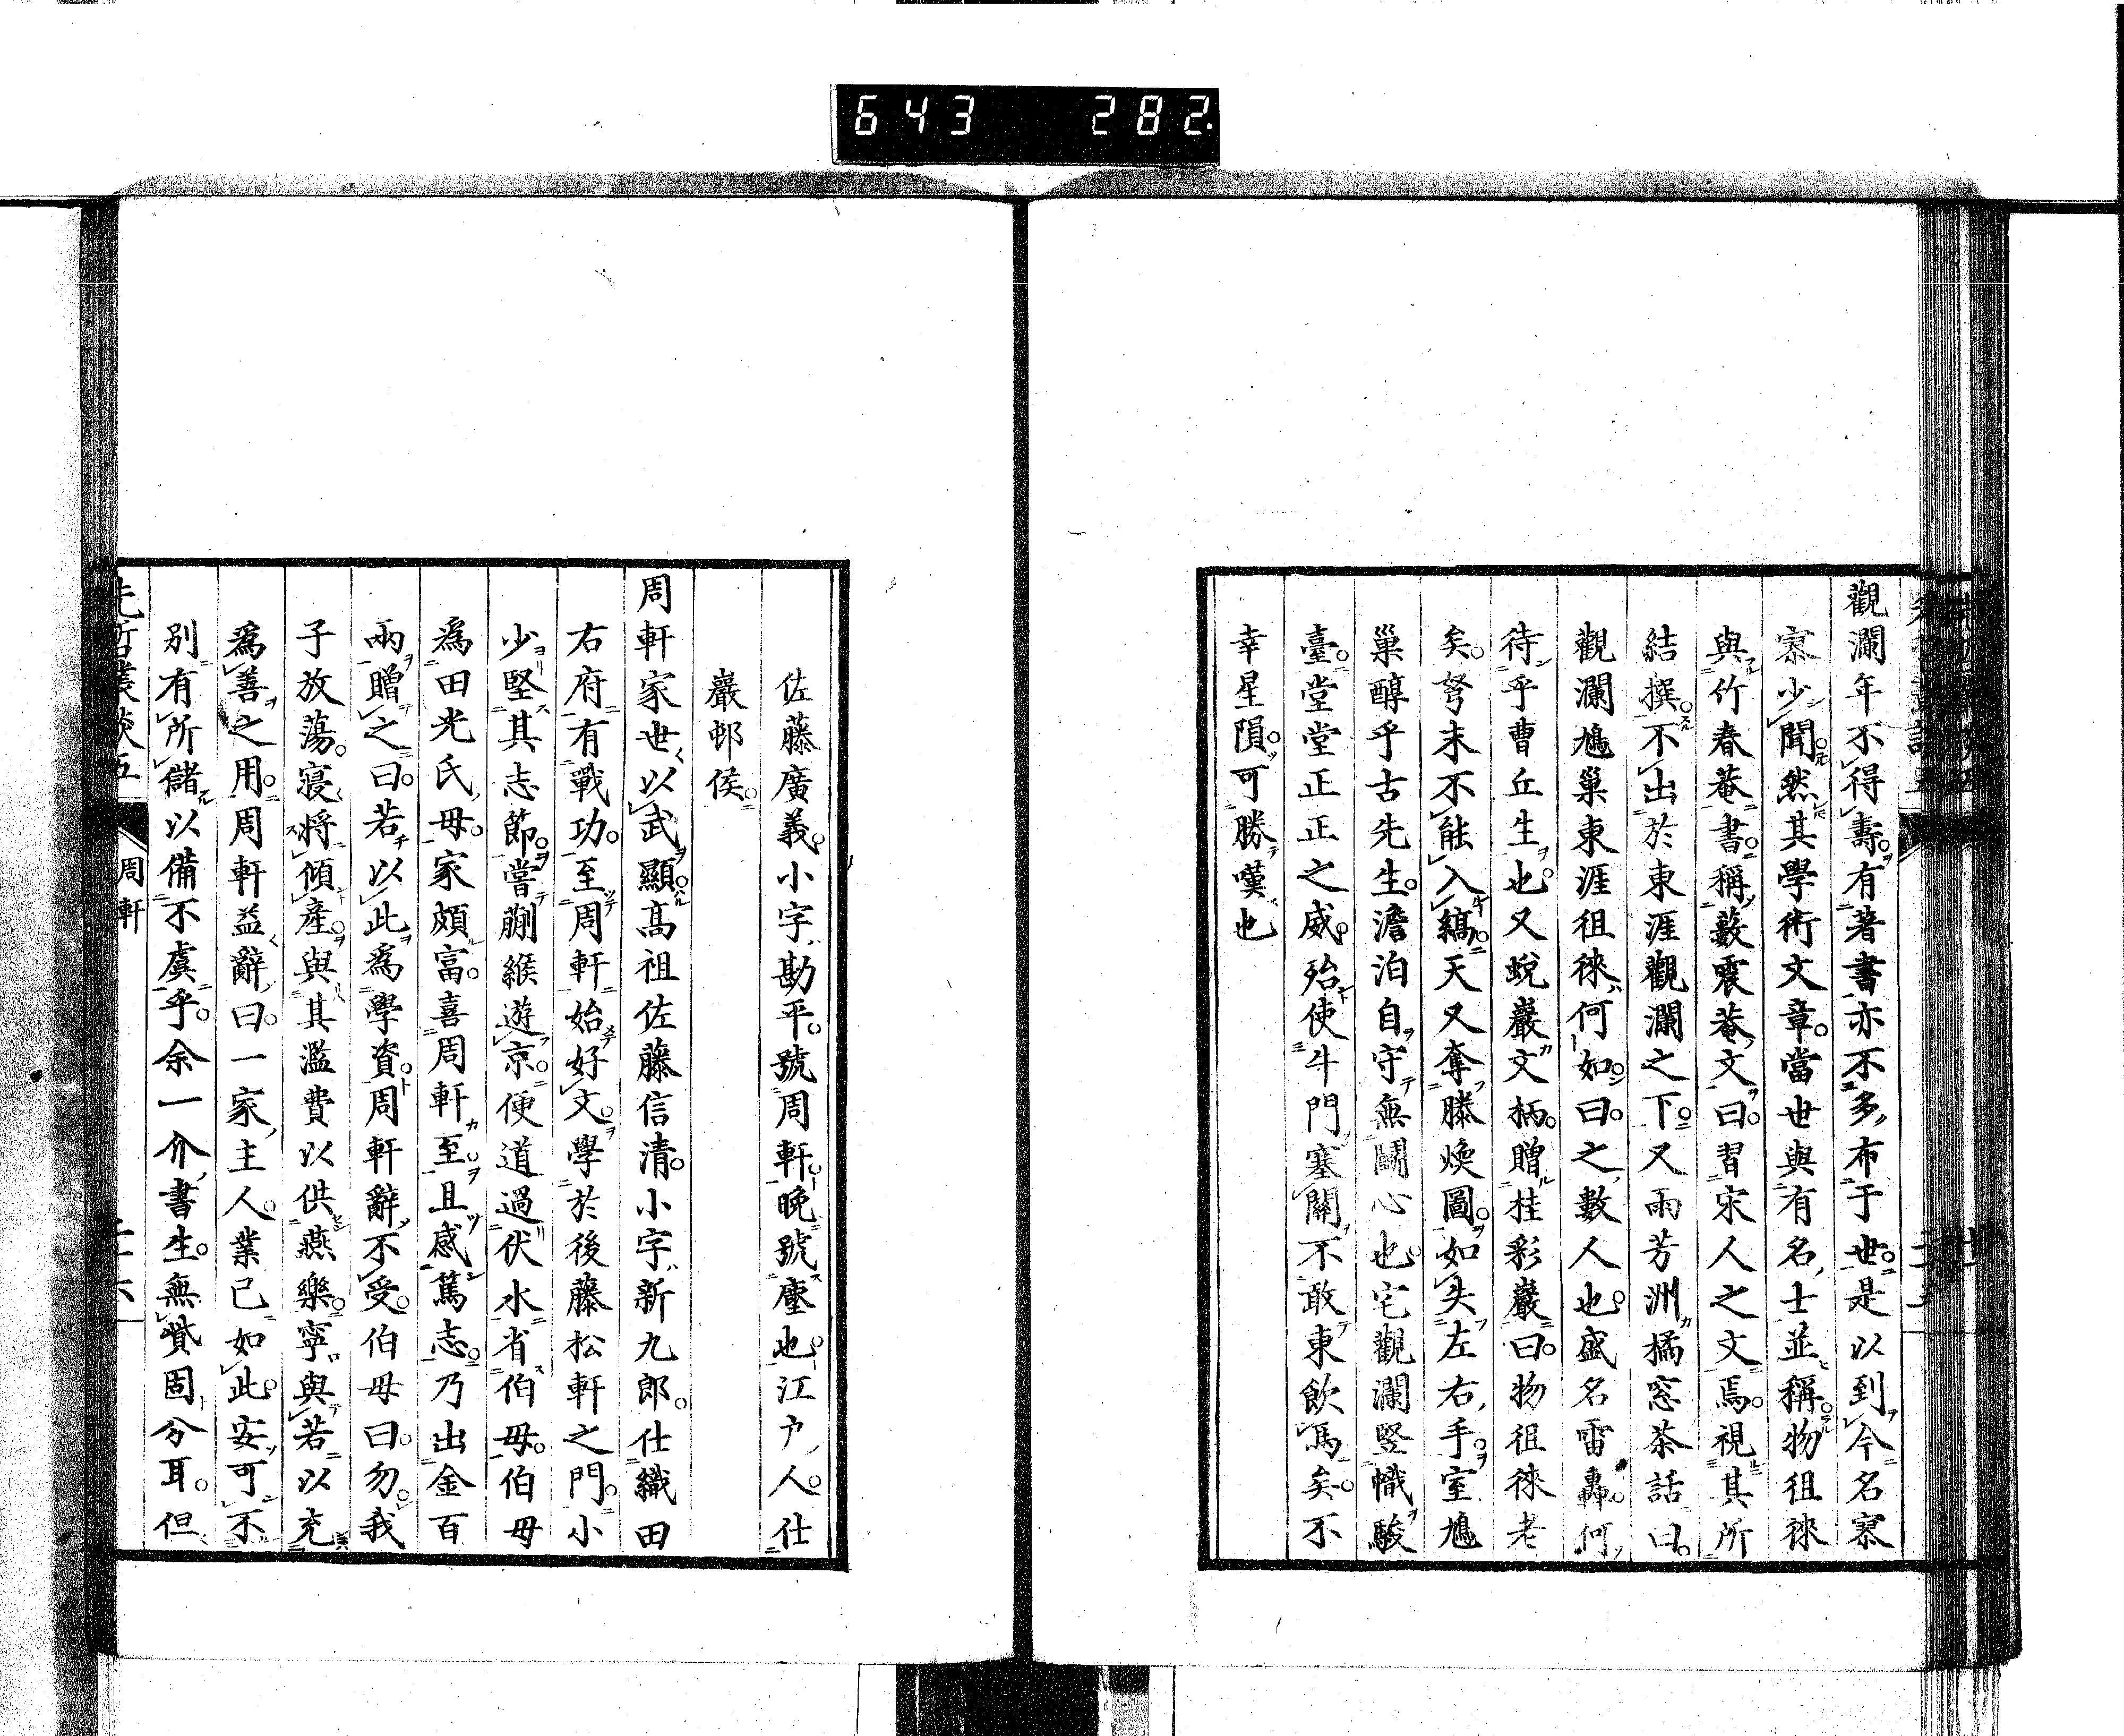 643 282.
觀瀾年不得壽有著書亦不多布于世是以到今名寥
寥少聞然其學術文章當世與有名士並稱物徂徠
與竹春菴書稱藪震菴文曰習宋人之文焉視其所
結撰不出於東涯觀瀾之下又雨芳洲橘窓茶話曰
觀瀾鳩巢東涯徂徠何如曰之數人也盛名雷轟何
待乎曹丘生也又蛻巖文柄贈桂彩巖曰物徂徠老
矣弩末不能入縞天又奪滕煥圖如失左右手室鳩
巢醇乎古先生澹泊自守無鬭心也宅觀瀾竪幟駿
臺堂堂正正之威殆使牛門塞關不敢東飲馬矣不
幸星隕可勝嘆也
佐藤廣義小字勘平號周軒晚號塵也江戶人仕
巖邨侯
周軒家世以武顯高祖佐藤信清小字新九郎仕織田
右府有戰功至周軒始好文學於後藤松軒之門小
少堅其志節嘗蒯緱遊京便道過伏水省伯母伯母
為田光氏母家頗富喜周軒至且感篤志乃出金百
兩贈之曰若以此為學資周軒辭不受伯母曰勿我
子放蕩寢將傾產與其濫費以供燕樂寧與若以充
為善之用周軒益辭曰一家主人業已如此安可不
別有所儲以備不虞乎余一介書生無貲固分耳但
先哲叢談五 周軒